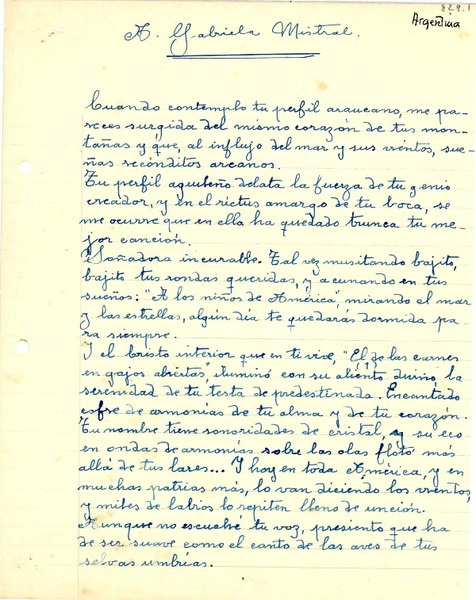 829.1
Argentina
A. Gabriela Mistral.
Cuando contemplo tu perfil araucano, me pa-
reces surgida del mismo corazón de tus mon-
tañas y que, al influjo del mar y sus vientos, sue-
ñas recónditos arcanos.
Tu perfil aguileño delata la fuerza de tu genio
creador, y en el rictus amargo de tu boca, se
me ocurre que en ella ha quedado trunca tu me-
jor canción.
Soñadora incurable. Tal vez musitando bajito,
bajito tus rondas queridas, y acunando en tus
sueños: "A los niños de América", mirando el mar
y las estrellas, algún día te quedarás dormida pa-
ra siempre.
Y el Cristo interior que en ti vive, "El de las carnes
en gajos abiertas", (1) iluminó con su aliento divino, la
serenidad de tu testa de predestinada. Encantado
cofre de armonías de tu alma y de tu corazón.
Tu nombre tiene sonoridades de cristal, y su eco
en ondas de armonías sobre las olas flotó más
allá de tus lares... Y hoy en toda América, y en
muchas patrias más, lo van diciendo los vientos,
y miles de labios lo repiten lleno de unción.
Aunque no escuché tu voz, presiento que ha
de ser suave como el canto de las aves de tus
selvas umbrías.